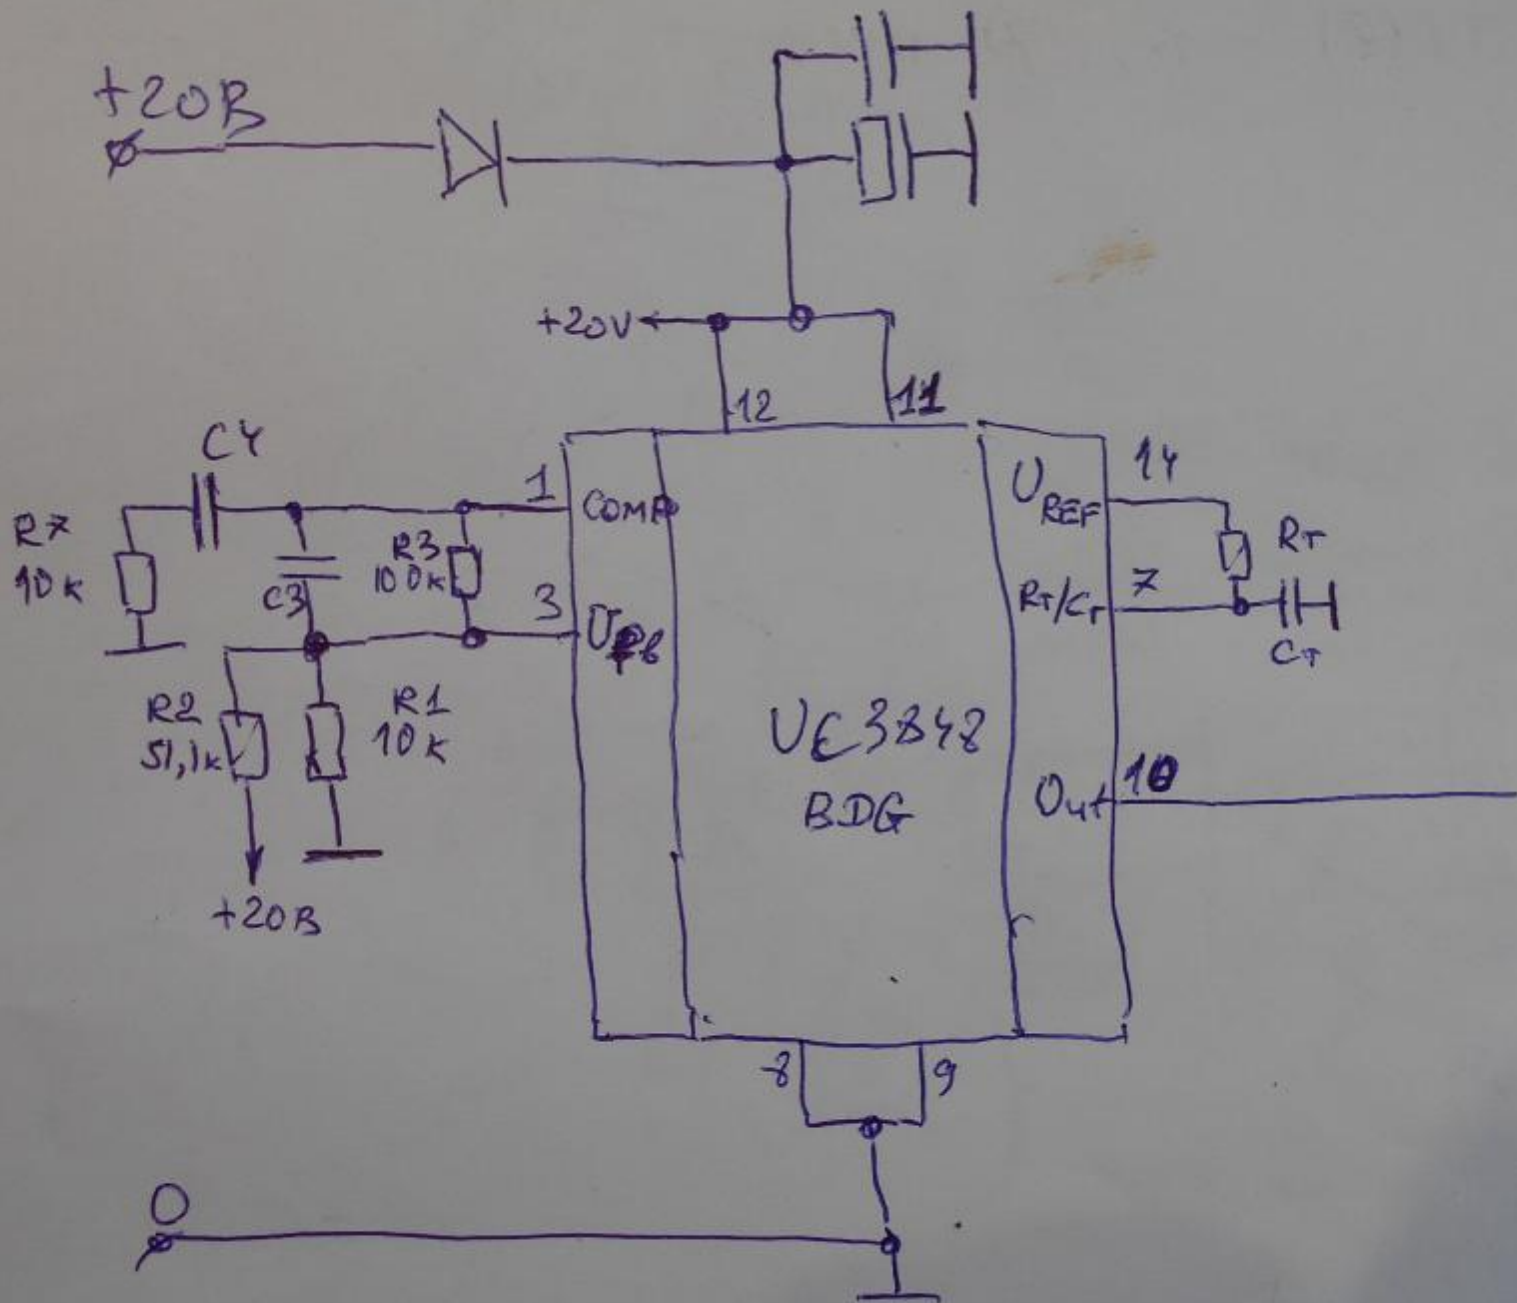 +20В
+20V
12
11
C4
R7
10к
C3
R3
100к
1
COMP
3
R2
51,1к
R1
10к
+20В
UREF
14
RT
RT/CT
7
CT
BDG
Out
10
8
9
0